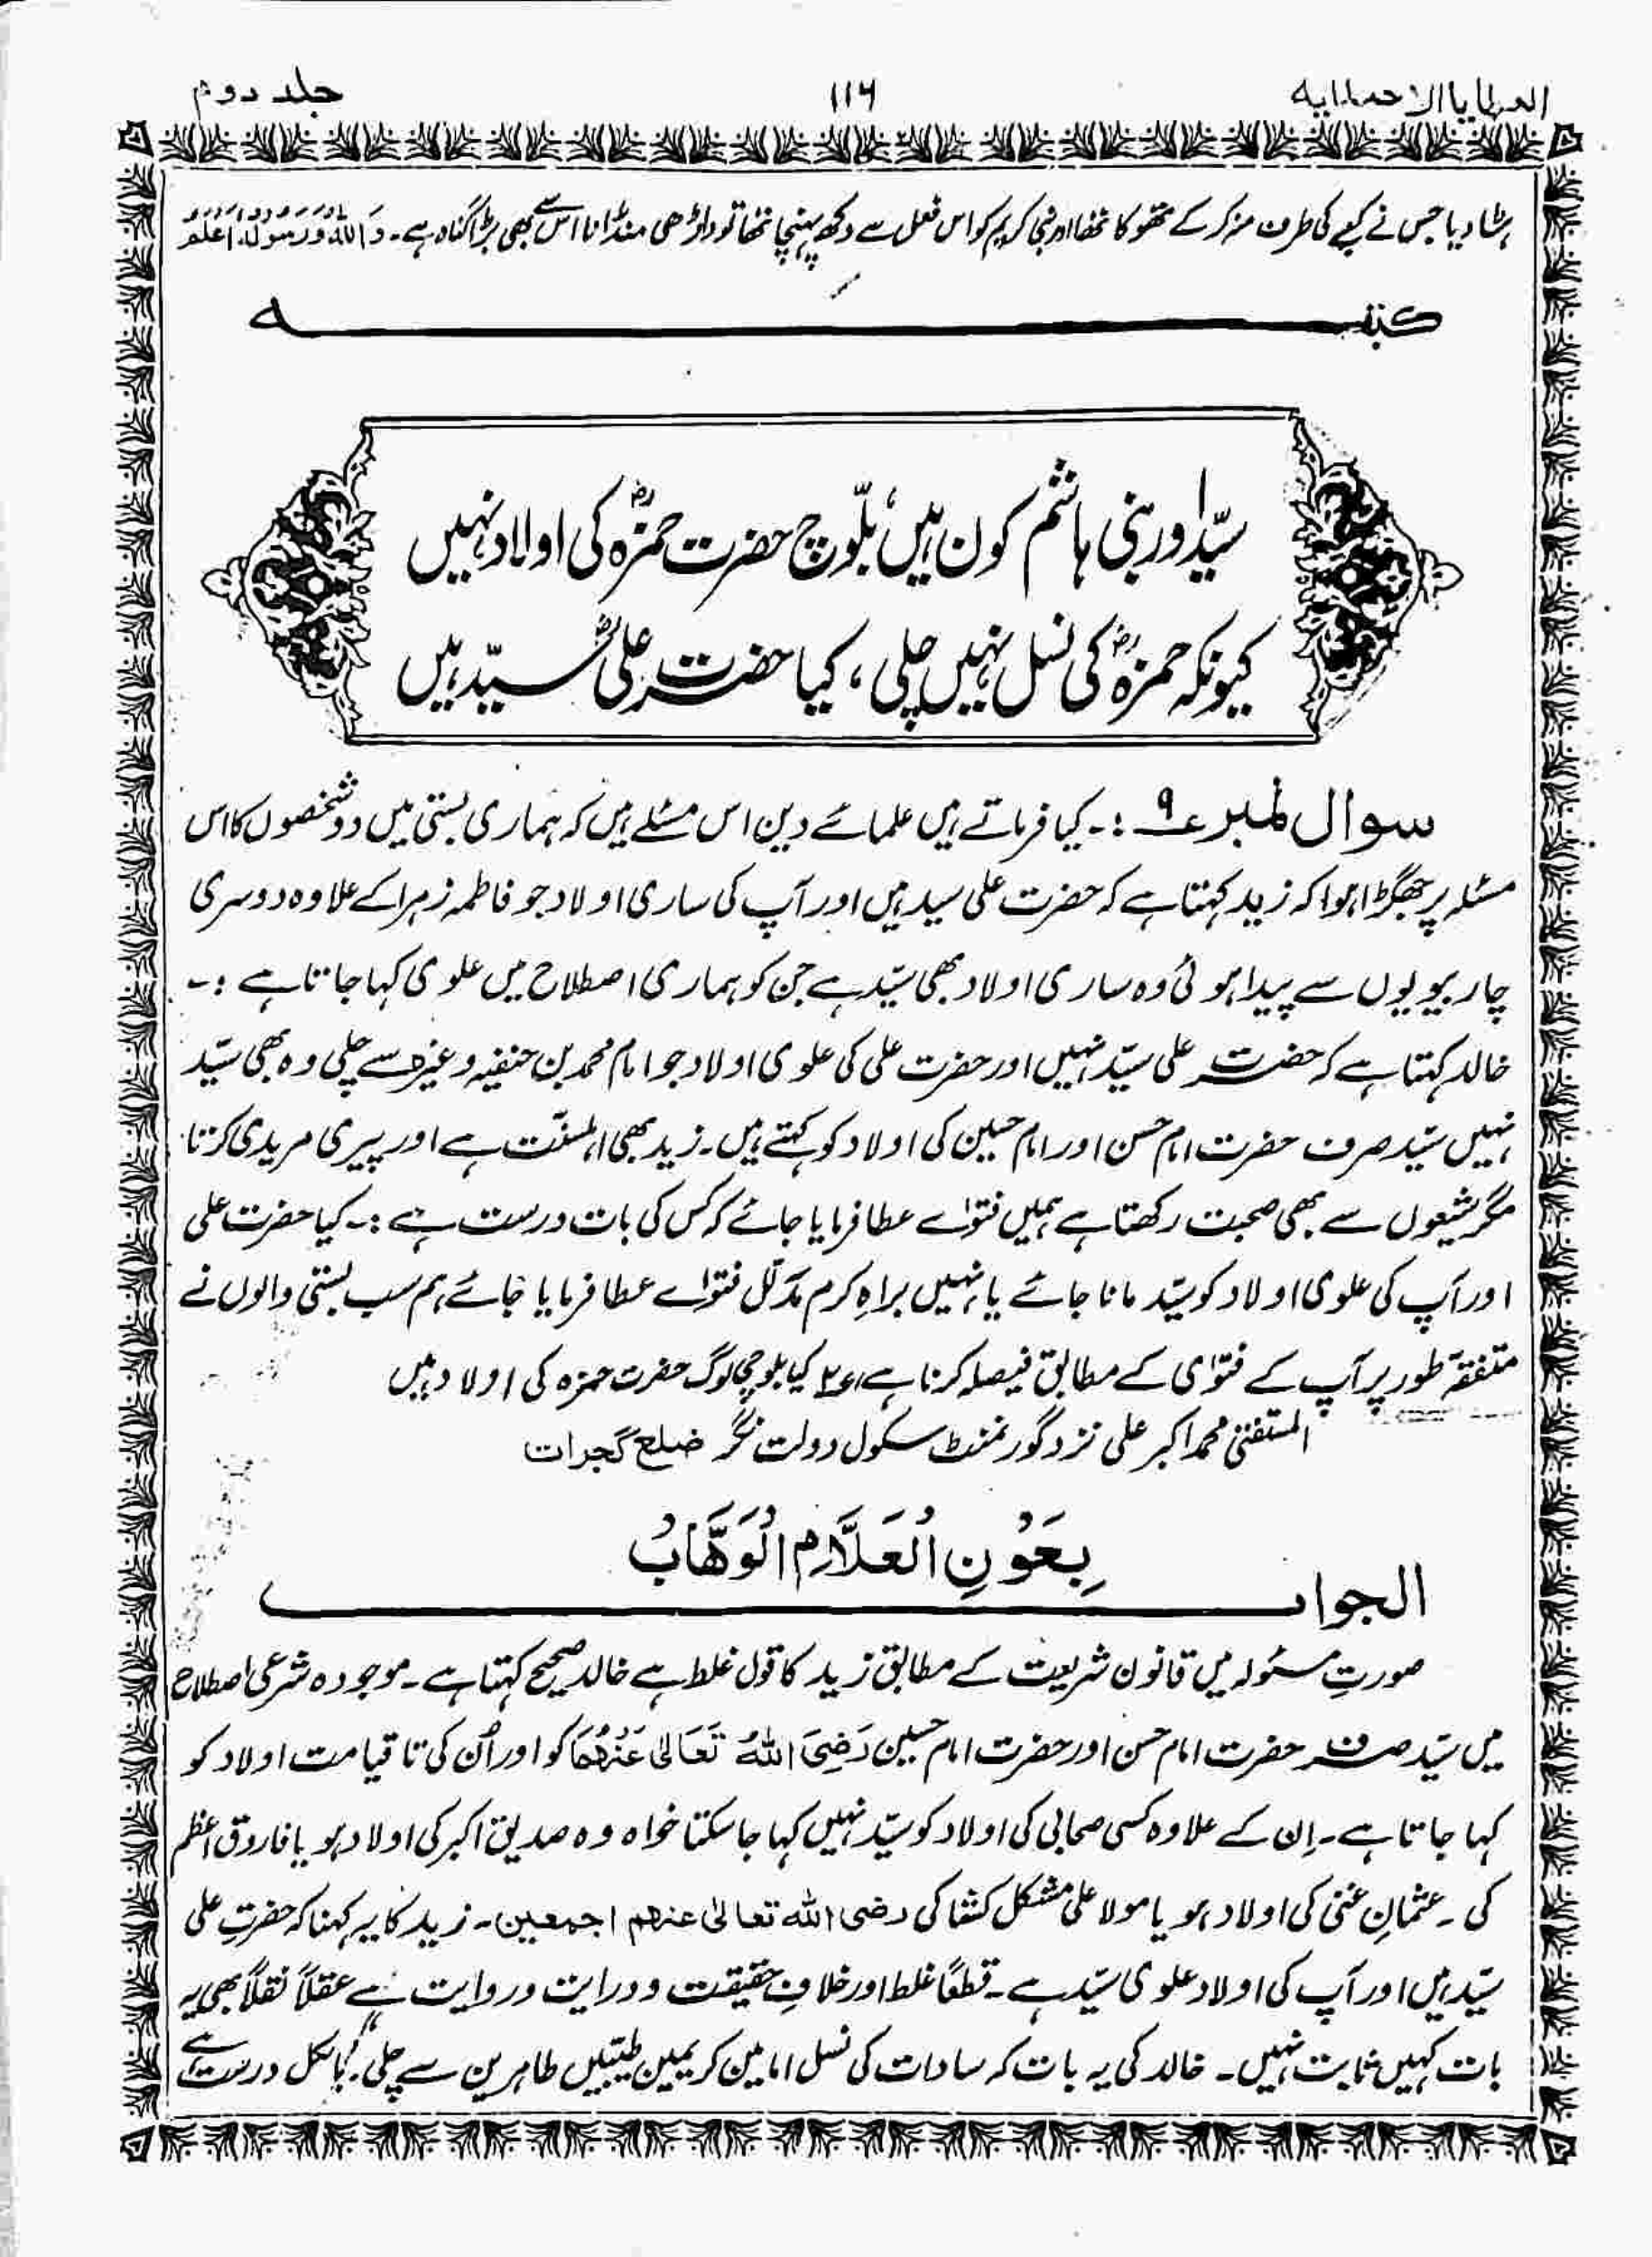 العطایا الاحمدیه ۱۱۶ جلد دوم
ہٹا دیا جس نے کعبے کی طرف منہ کر کے تھوکا تھا اور نبی کریم کو اس فعل سے دکھ پہنچا تھا تو داڑھی منڈانا اس سے بھی بڑا گناہ ہے۔ وَاللّٰہُ وَرَسُولُہٗ اَعْلَمُ
کتبہ
سیّد اور بنی ہاشم کون ہیں، بلّوچ حضرت حمزہؓ کی اولاد نہیں
کیونکہ حمزہؓ کی نسل نہیں چلی، کیا حضرت علیؓ سیّد ہیں
سوال نمبر ۹ :۔ کیا فرماتے ہیں علمائے دین اس مسئلے میں کہ ہماری بستی میں دو شخصوں کا اس
مسئلہ پر جھگڑا ہوا کہ زید کہتا ہے کہ حضرت علی سید ہیں اور آپ کی ساری اولاد جو فاطمہ زہرا کے علاوہ دوسری
چار بیویوں سے پیدا ہوئی وہ ساری اولاد بھی سیّد ہے جن کو ہماری اصطلاح میں علوی کہا جاتا ہے :۔
خالد کہتا ہے کہ حضرت علی سیّد نہیں اور حضرت علی کی علوی اولاد جو امام محمد بن حنفیہ وغیرہ سے چلی وہ بھی سیّد
نہیں سیّد صرف حضرت امام حسن اور امام حسین کی اولاد کو کہتے ہیں۔ زید بھی اہلسنّت ہے اور پیری مریدی کرتا
مگر شیعوں سے بھی صحبت رکھتا ہے ہمیں فتوٰے عطا فرمایا جائے کہ کس کی بات درست ہے :۔ کیا حضرت علی
اور آپ کی علوی اولاد کو سیّد مانا جائے یا نہیں براہِ کرم مدلّل فتوٰے عطا فرمایا جائے ہم سب بستی والوں نے
متفقہ طور پر آپ کے فتوٰی کے مطابق فیصلہ کرنا ہے، ۲ کیا بلوچی لوگ حضرت حمزہ کی اولاد ہیں
المستفتی محمد اکبر علی نزد گورنمنٹ سکول دولت نگر ضلع گجرات
بِعَوْنِ الْعَلَّامِ الْوَھَّابُ
الجواب
صورتِ مسئولہ میں قانون شریعت کے مطابق زید کا قول غلط ہے خالد صحیح کہتا ہے۔ موجودہ شرعی اصطلاح
میں سیّد صرف حضرت امام حسن اور حضرت امام حسین رَضِیَ اللّٰہُ تَعَالٰی عَنْھُمَا کو اور اُن کی تا قیامت اولاد کو
کہا جاتا ہے۔ اِن کے علاوہ کسی صحابی کی اولاد کو سیّد نہیں کہا جا سکتا خواہ وہ صدیق اکبر کی اولاد ہو یا فاروق اعظم
کی۔ عثمانِ غنی کی اولاد ہو یا مولا علی مشکل کشا کی رضی اللہ تعالیٰ عنھم اجمعین۔ زید کا یہ کہنا کہ حضرتِ علی
سیّد ہیں اور آپ کی اولاد علوی سیّد ہے۔ قطعًا غلط اور خلافِ حقیقت و درایت و روایت ہے عقلاً نقلاً بھی یہ
بات کہیں ثابت نہیں۔ خالد کی یہ بات کہ سادات کی نسل امامین کریمین طیّبیں طاہرین سے چلی۔ بالکل درست ہے